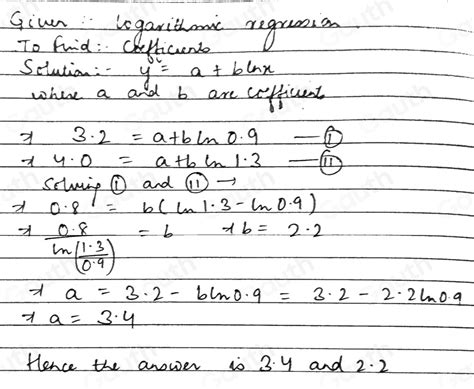 Given :- Logarithmic regression
To Find :- Coefficients
Solution :- y = a + b ln x
where a and b are coefficient
⇒ 3.2 = a+b ln 0.9 — (I)
⇒ 4.0 = a+b ln 1.3 — (II)
Solving (I) and (II) →
⇒ 0.8 = b(ln 1.3 - ln 0.9)
⇒ 0.8 / ln(1.3/0.9) = b ⇒ b = 2.2
⇒ a = 3.2 - b ln 0.9 = 3.2 - 2.2 ln 0.9
⇒ a = 3.4
Hence the answer is 3.4 and 2.2